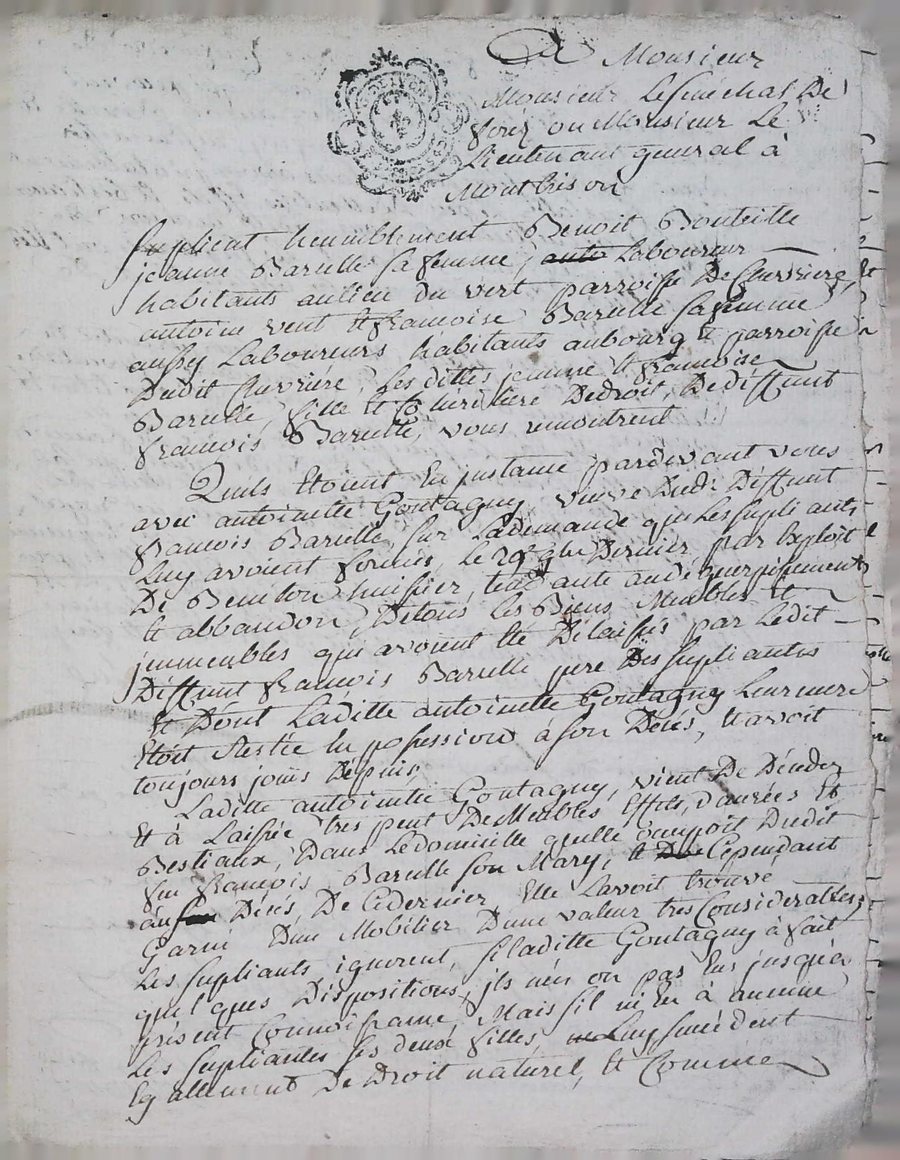 A Monsieur
Monsieur Le Senechal De
forez ou Monsieur Le
Lieutenant general à
Montbrison
Suplient humblement Benoit Bouteille
jeanne Barulle sa femme, Laboureur
habitants aulieu du vert parroisse De Chevriere,
antoine vent et francoise Barulle sa femme
aussy Laboureurs habitants aubourg et parroisse
Dudit Chevriere, Les dittes jeanne et francoise
Barulle, fille et Coheritiere Dedroit, De diffunt
francois Barulle, vous remontrent
Quils Etoient En jnstance pardevant vous
avec antoinette Goutagny veuve Dudt Diffunt
francois Barulle, sur Lademande que Les supliants
Luy avoient formée, Le 29e 9bre Dernier par Exploit
De huissier, tendante audeguerpissement
et abbandon, Detous Les Biens Meubles et
jmmeubles qui avoient été Délaissés par Ledit
Diffunt francois Barulle pere Des supliantes
Et Dont Laditte antoinette Goutagny Leur mere
Etoit Restée En possession à son Décés, et avoit
toujours jouis Depuis,
Laditte antoinette Goutagny, vient De Déceder
Et à Laissée tres peut De Meubles Effets, danrées Et
Bestiaux, Dans Ledomicille quelle occupoit Dudit
feu francois Barulle son Mary, et Cependant
au Décés, De Cedernier, Elle Lavoit trouvé
Garni D'un Mobilier D'une valeur tres Considerable,
Les supliants ignorent, si laditte Goutagny à fait
quelques Dispositions, jls nen on pas Eus jusqua
present Connoissance Mais sil nen à aucune
Les supliantes ses deux filles, Luy succèdent
Egallement De Droit naturel, Et Comme